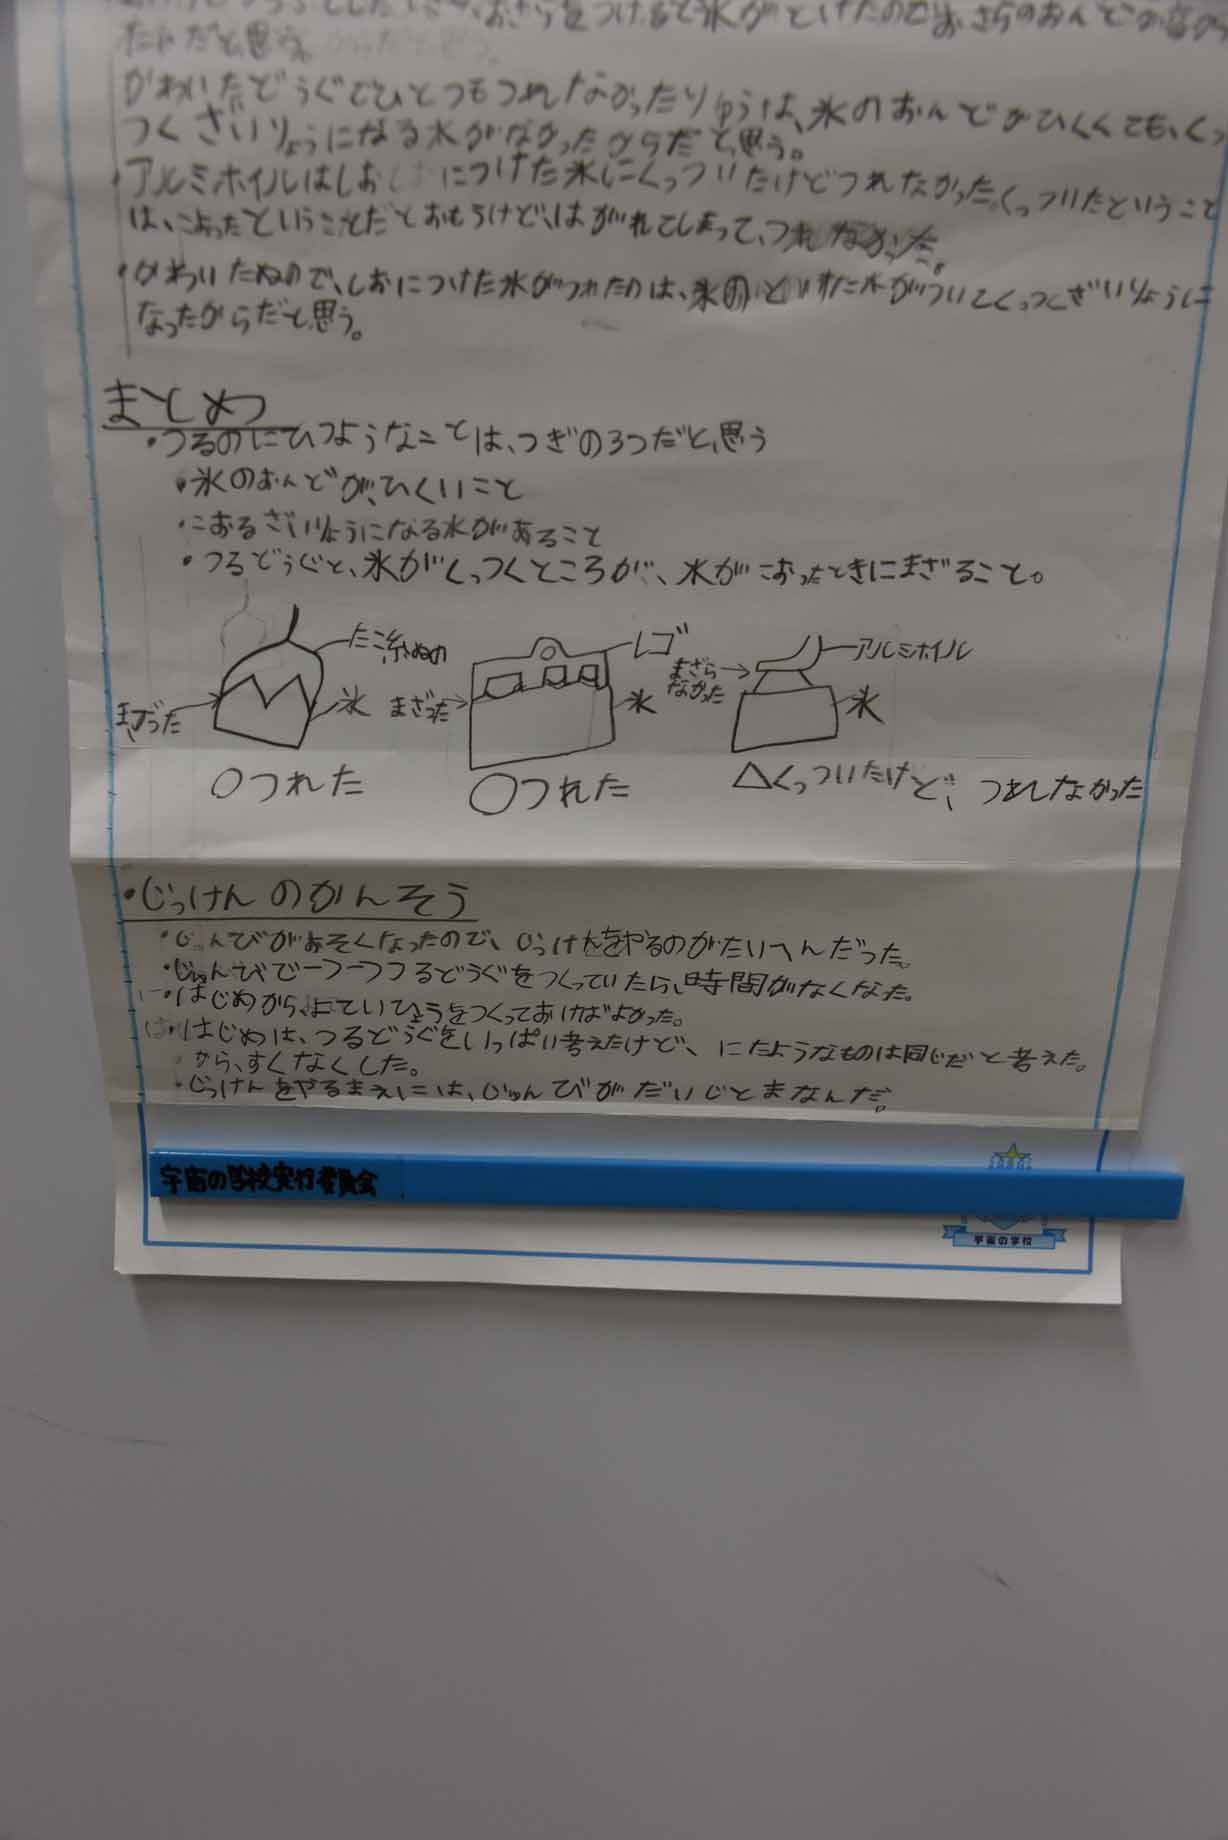 さらをつけると氷がとけたのでおさらのおんどが高かっ
たからだと思う。
かわいたどうぐでひとつもつれなかったりゆうは、氷のおんどがひくくても、くっ
つくざいりょうになる水がなかったからだと思う。
・アルミホイルはしおにつけた氷にくっついたけどつれなかった。くっついたということ
は、こおったということだとおもうけど、はがれてしまって、つれなかった。
・かわいたぬので、しおにつけた氷がつれたのは、氷のといた水がついてくっつくざいりょうに
なったからだと思う。
まとめ
・つるのにひつようなことは、つぎの3つだと思う
・氷のおんどが、ひくいこと
・こおるざいりょうになる水があること
・つるどうぐと、氷がくっつくところが、水がこおったときにまざること。
たこ糸ぬの
氷
まざった
○つれた
レゴ
まざった
氷
○つれた
まざら
なかった
アルミホイル
氷
△くっついたけど、つれなかった
・じっけんのかんそう
・じゅんびがおそくなったので、じっけんをやるのがたいへんだった。
・じゅんびで一つ一つつるどうぐをつくっていたら、時間がなくなった。
・はじめから、よていひょうをつくっておけばよかった。
・はじめは、つるどうぐをいっぱい考えたけど、にたようなものは同じだと考えた。
から、すくなくした。
・じっけんをやるまえには、じゅんびがだいじとまなんだ。
宇宙の学校実行委員会
宇宙の学校